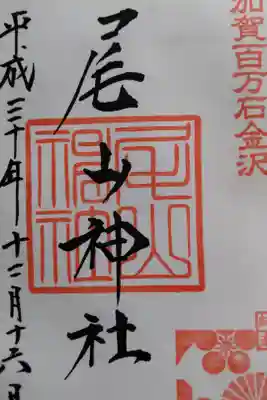 加賀百万石金沢
尾山神社
尾山神社
平成三十年十二月十六日